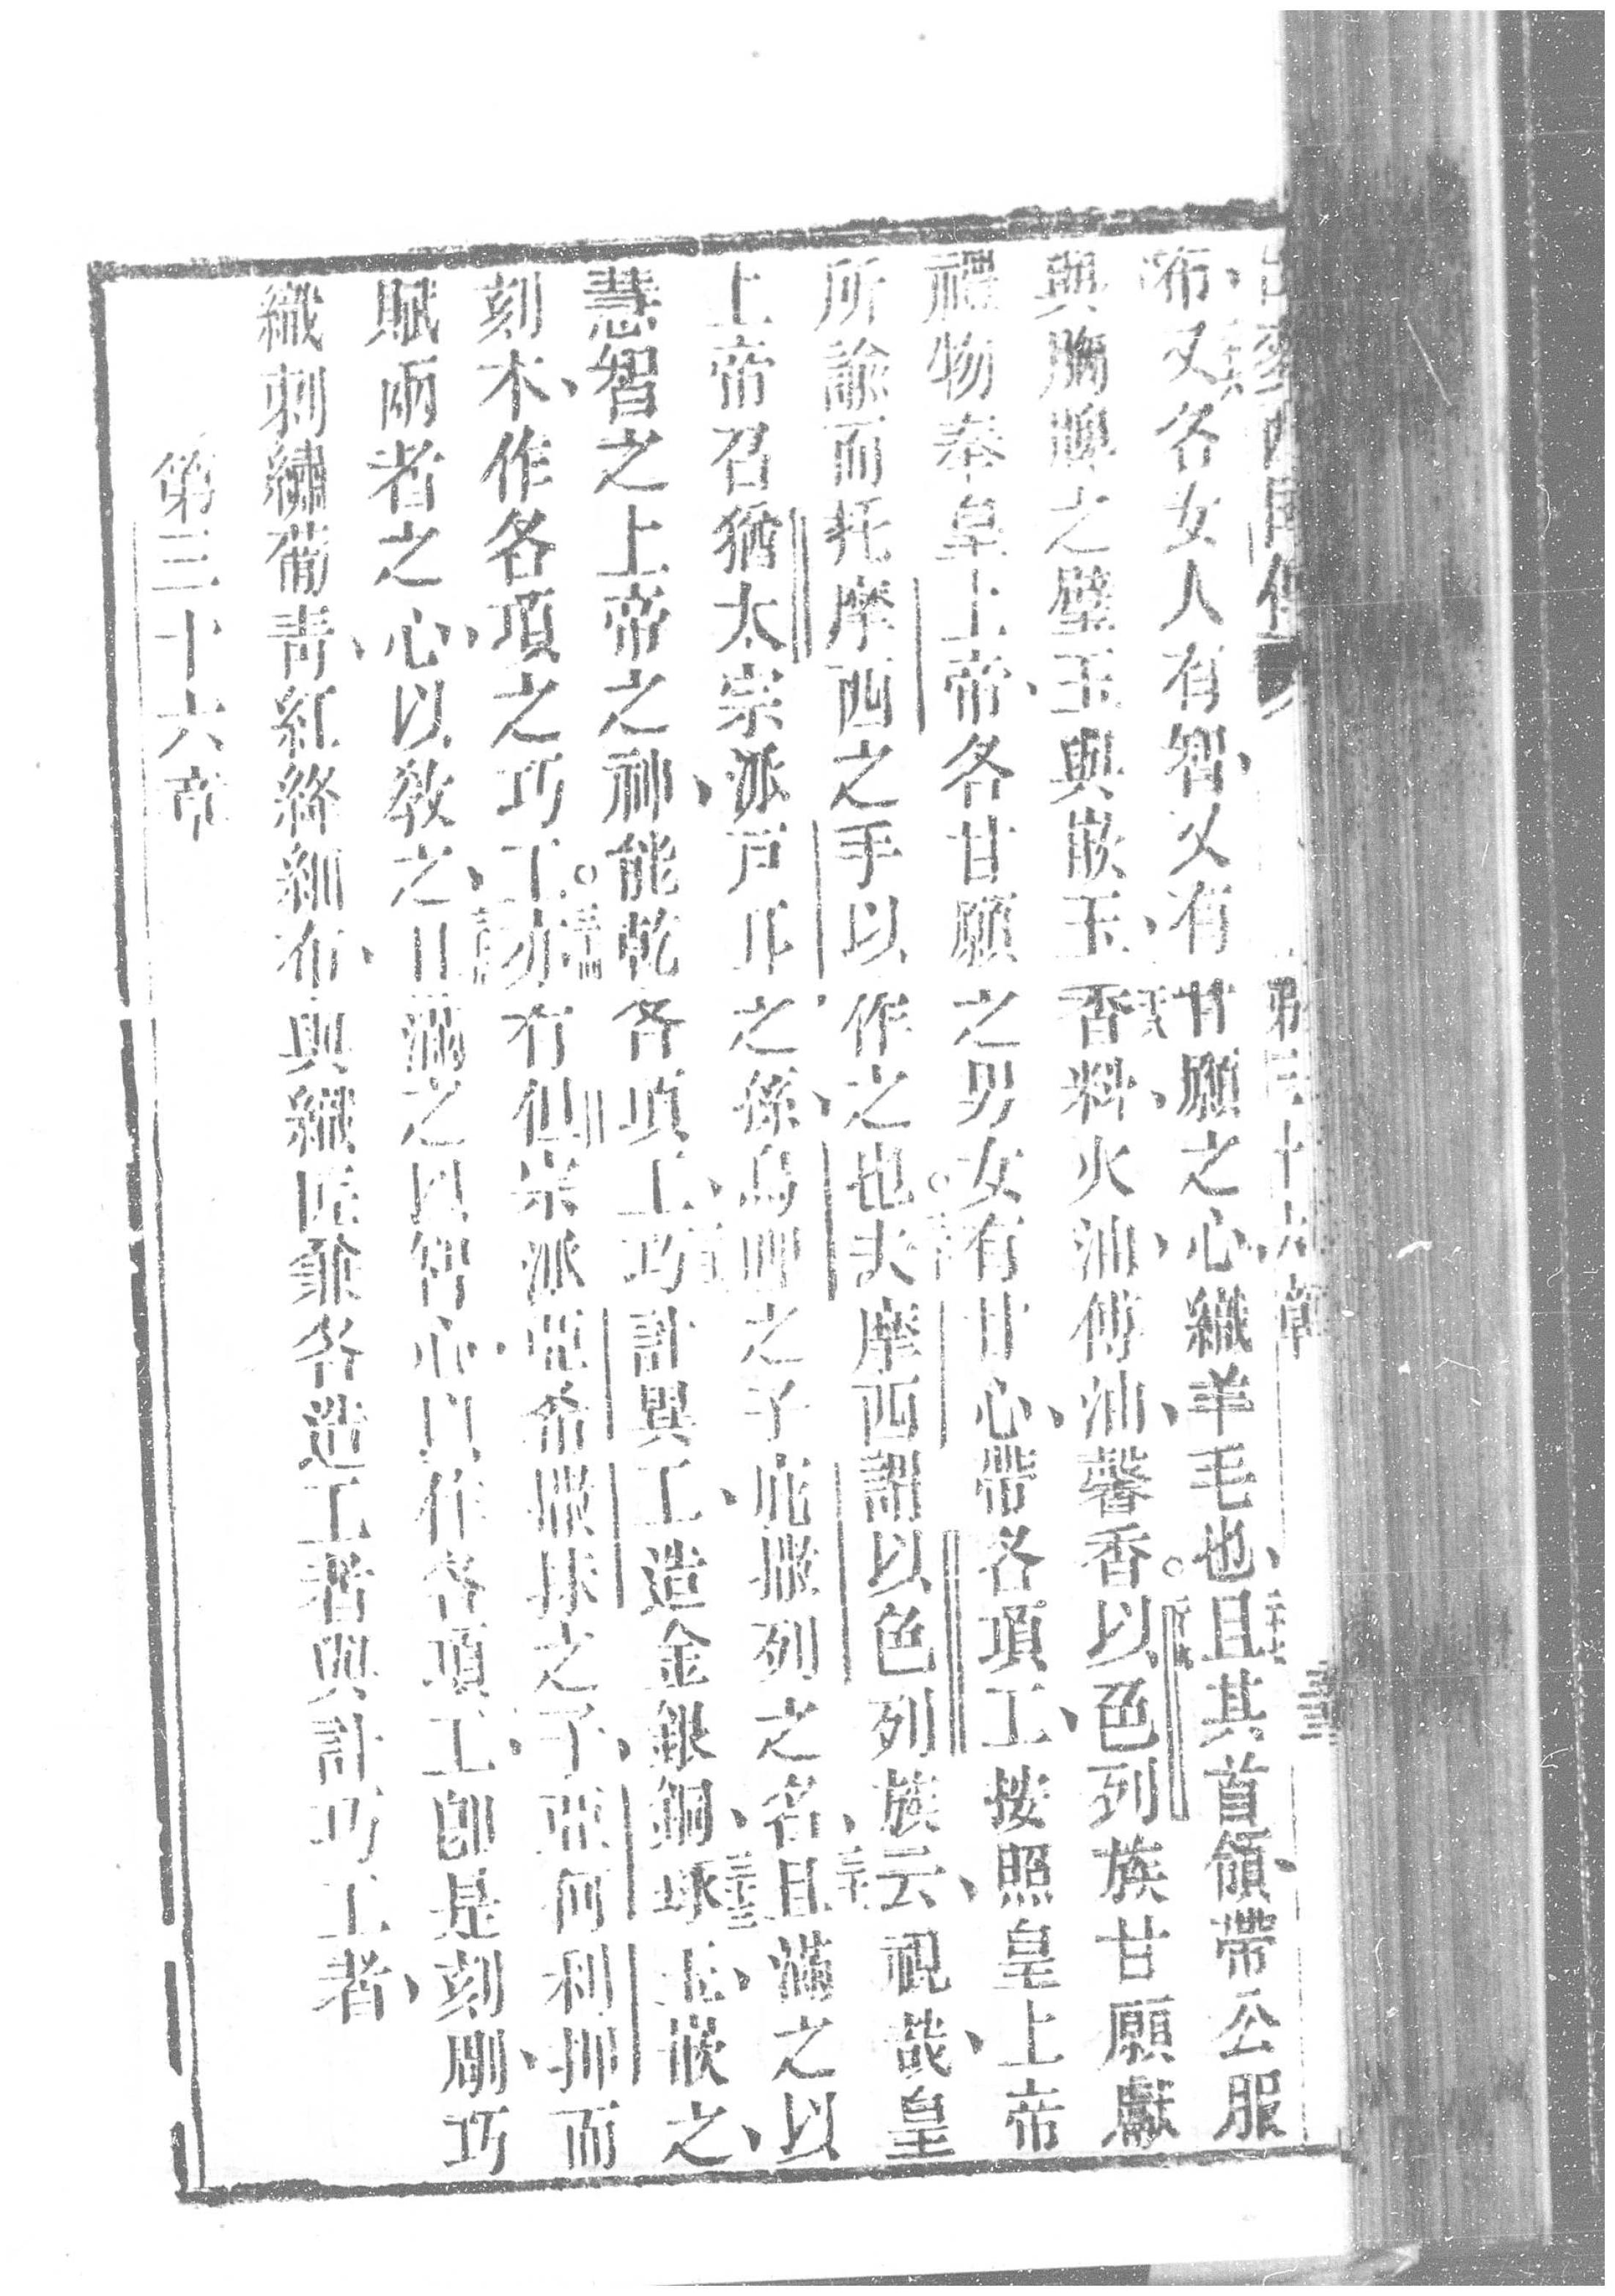 布又各女人有智又有甘願之心織羊毛也且其首領帶公服
與胸牌之壁玉與嵌玉香料火油傅油馨香以色列族甘願獻
禮物奉皇上帝各甘願之男女有甘心帶各項工按照皇上帝
所諭而托摩西之手以作之也夫摩西謂以色列族云視哉皇
上帝召猶太宗派戶耳之孫烏之子庇撒列之名且滿之以
慧智之上帝之神能乾各項工巧計異工造金銀銅琢玉嵌之
刻木作各項之巧工亦有但宗派亞希撒抹之子亞何利押而
賦兩者之心以教之且滿之以智心以作各項工卽是刻剛巧
織刺繡葡青紅絳細布與織匠兼各造工者與計巧工者
第三十六章